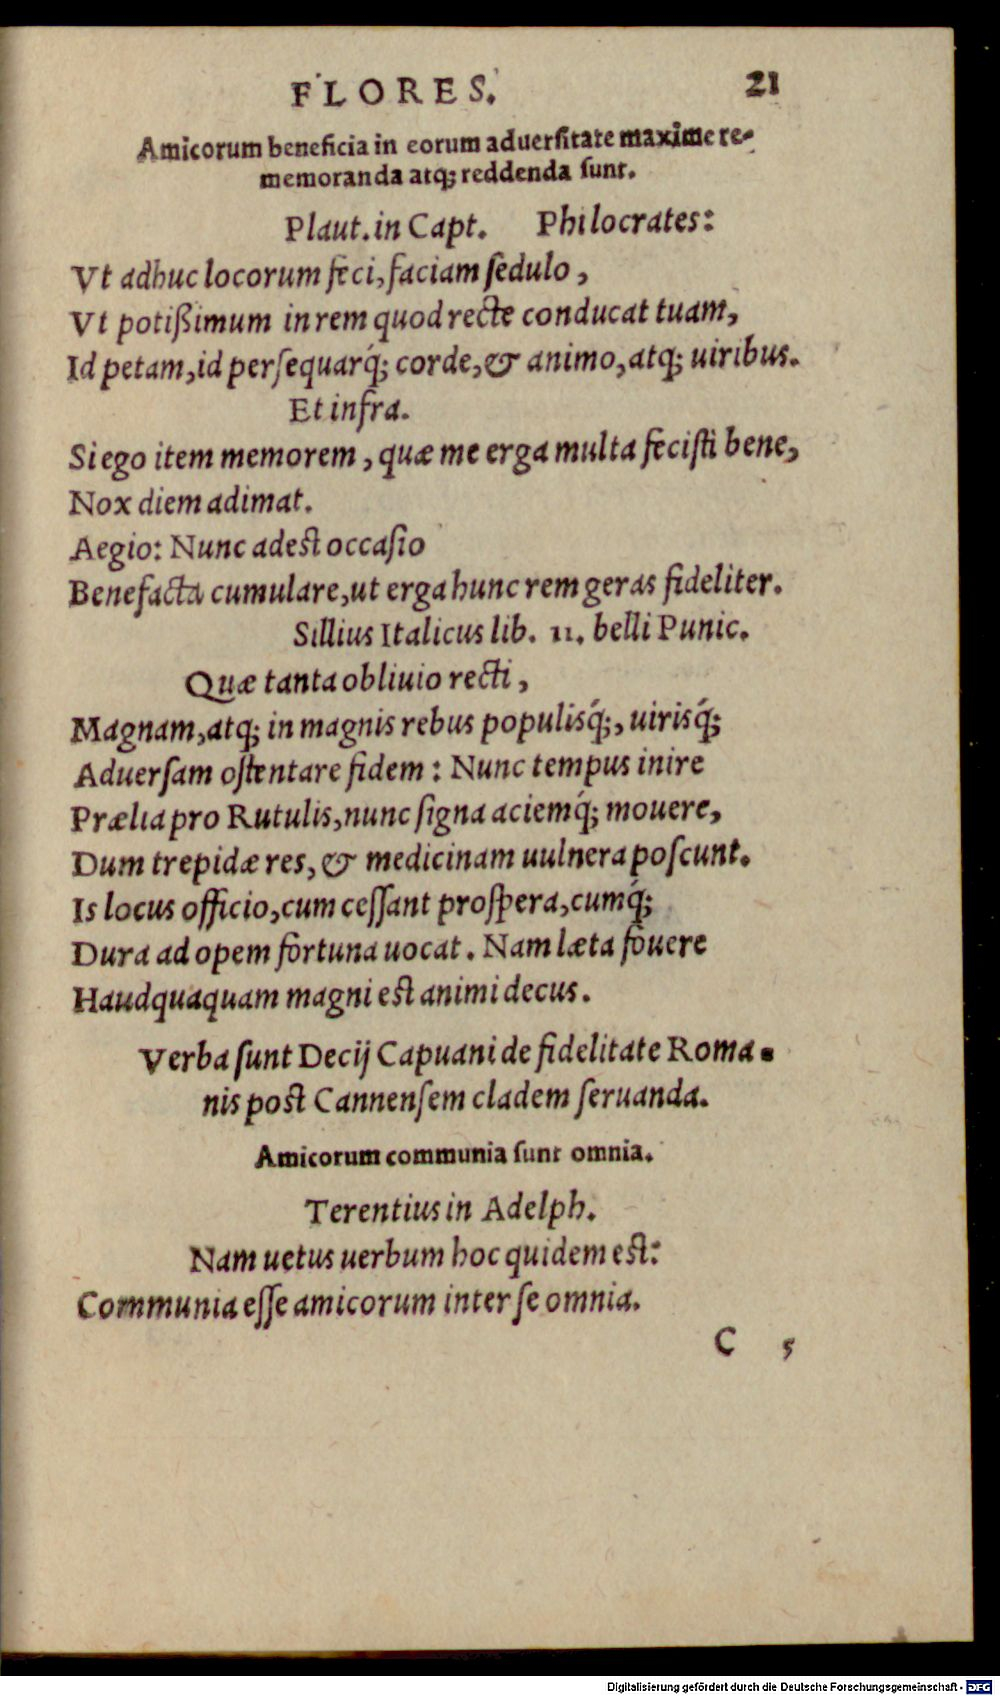 FLORES. 21
Amicorum beneficia in eorum aduerſitate maxime re-
memoranda atq; reddenda ſunt.
Plaut. in Capt. Philocrates:
Vt adhuc locorum feci, faciam ſedulo,
Vt potißimum in rem quod recte conducat tuam,
Id petam, id perſequarq́; corde, & animo, atq; uiribus.
Et infra.
Si ego item memorem, quæ me erga multa feciſti bene,
Nox diem adimat.
Aegio: Nunc adeſt occaſio
Benefacta cumulare, ut erga hunc rem geras fideliter.
Sillius Italicus lib. 11. belli Punic.
Quæ tanta obliuio recti,
Magnam, atq; in magnis rebus populisq́;, uirisq́;
Aduerſam oſtentare fidem: Nunc tempus inire
Prælia pro Rutulis, nunc ſigna aciemq́; mouere,
Dum trepidæ res, & medicinam uulnera poſcunt.
Is locus officio, cum ceſſant proſpera, cumq́;
Dura ad opem fortuna uocat. Nam læta fouere
Haudquaquam magni eſt animi decus.
Verba ſunt Decij Capuani de fidelitate Roma-
nis poſt Cannenſem cladem ſeruanda.
Amicorum communia ſunt omnia.
Terentius in Adelph.
Nam uetus uerbum hoc quidem eſt:
Communia eſſe amicorum inter ſe omnia.
C 5
Digitalisierung gefördert durch die Deutsche Forschungsgemeinschaft - DFG